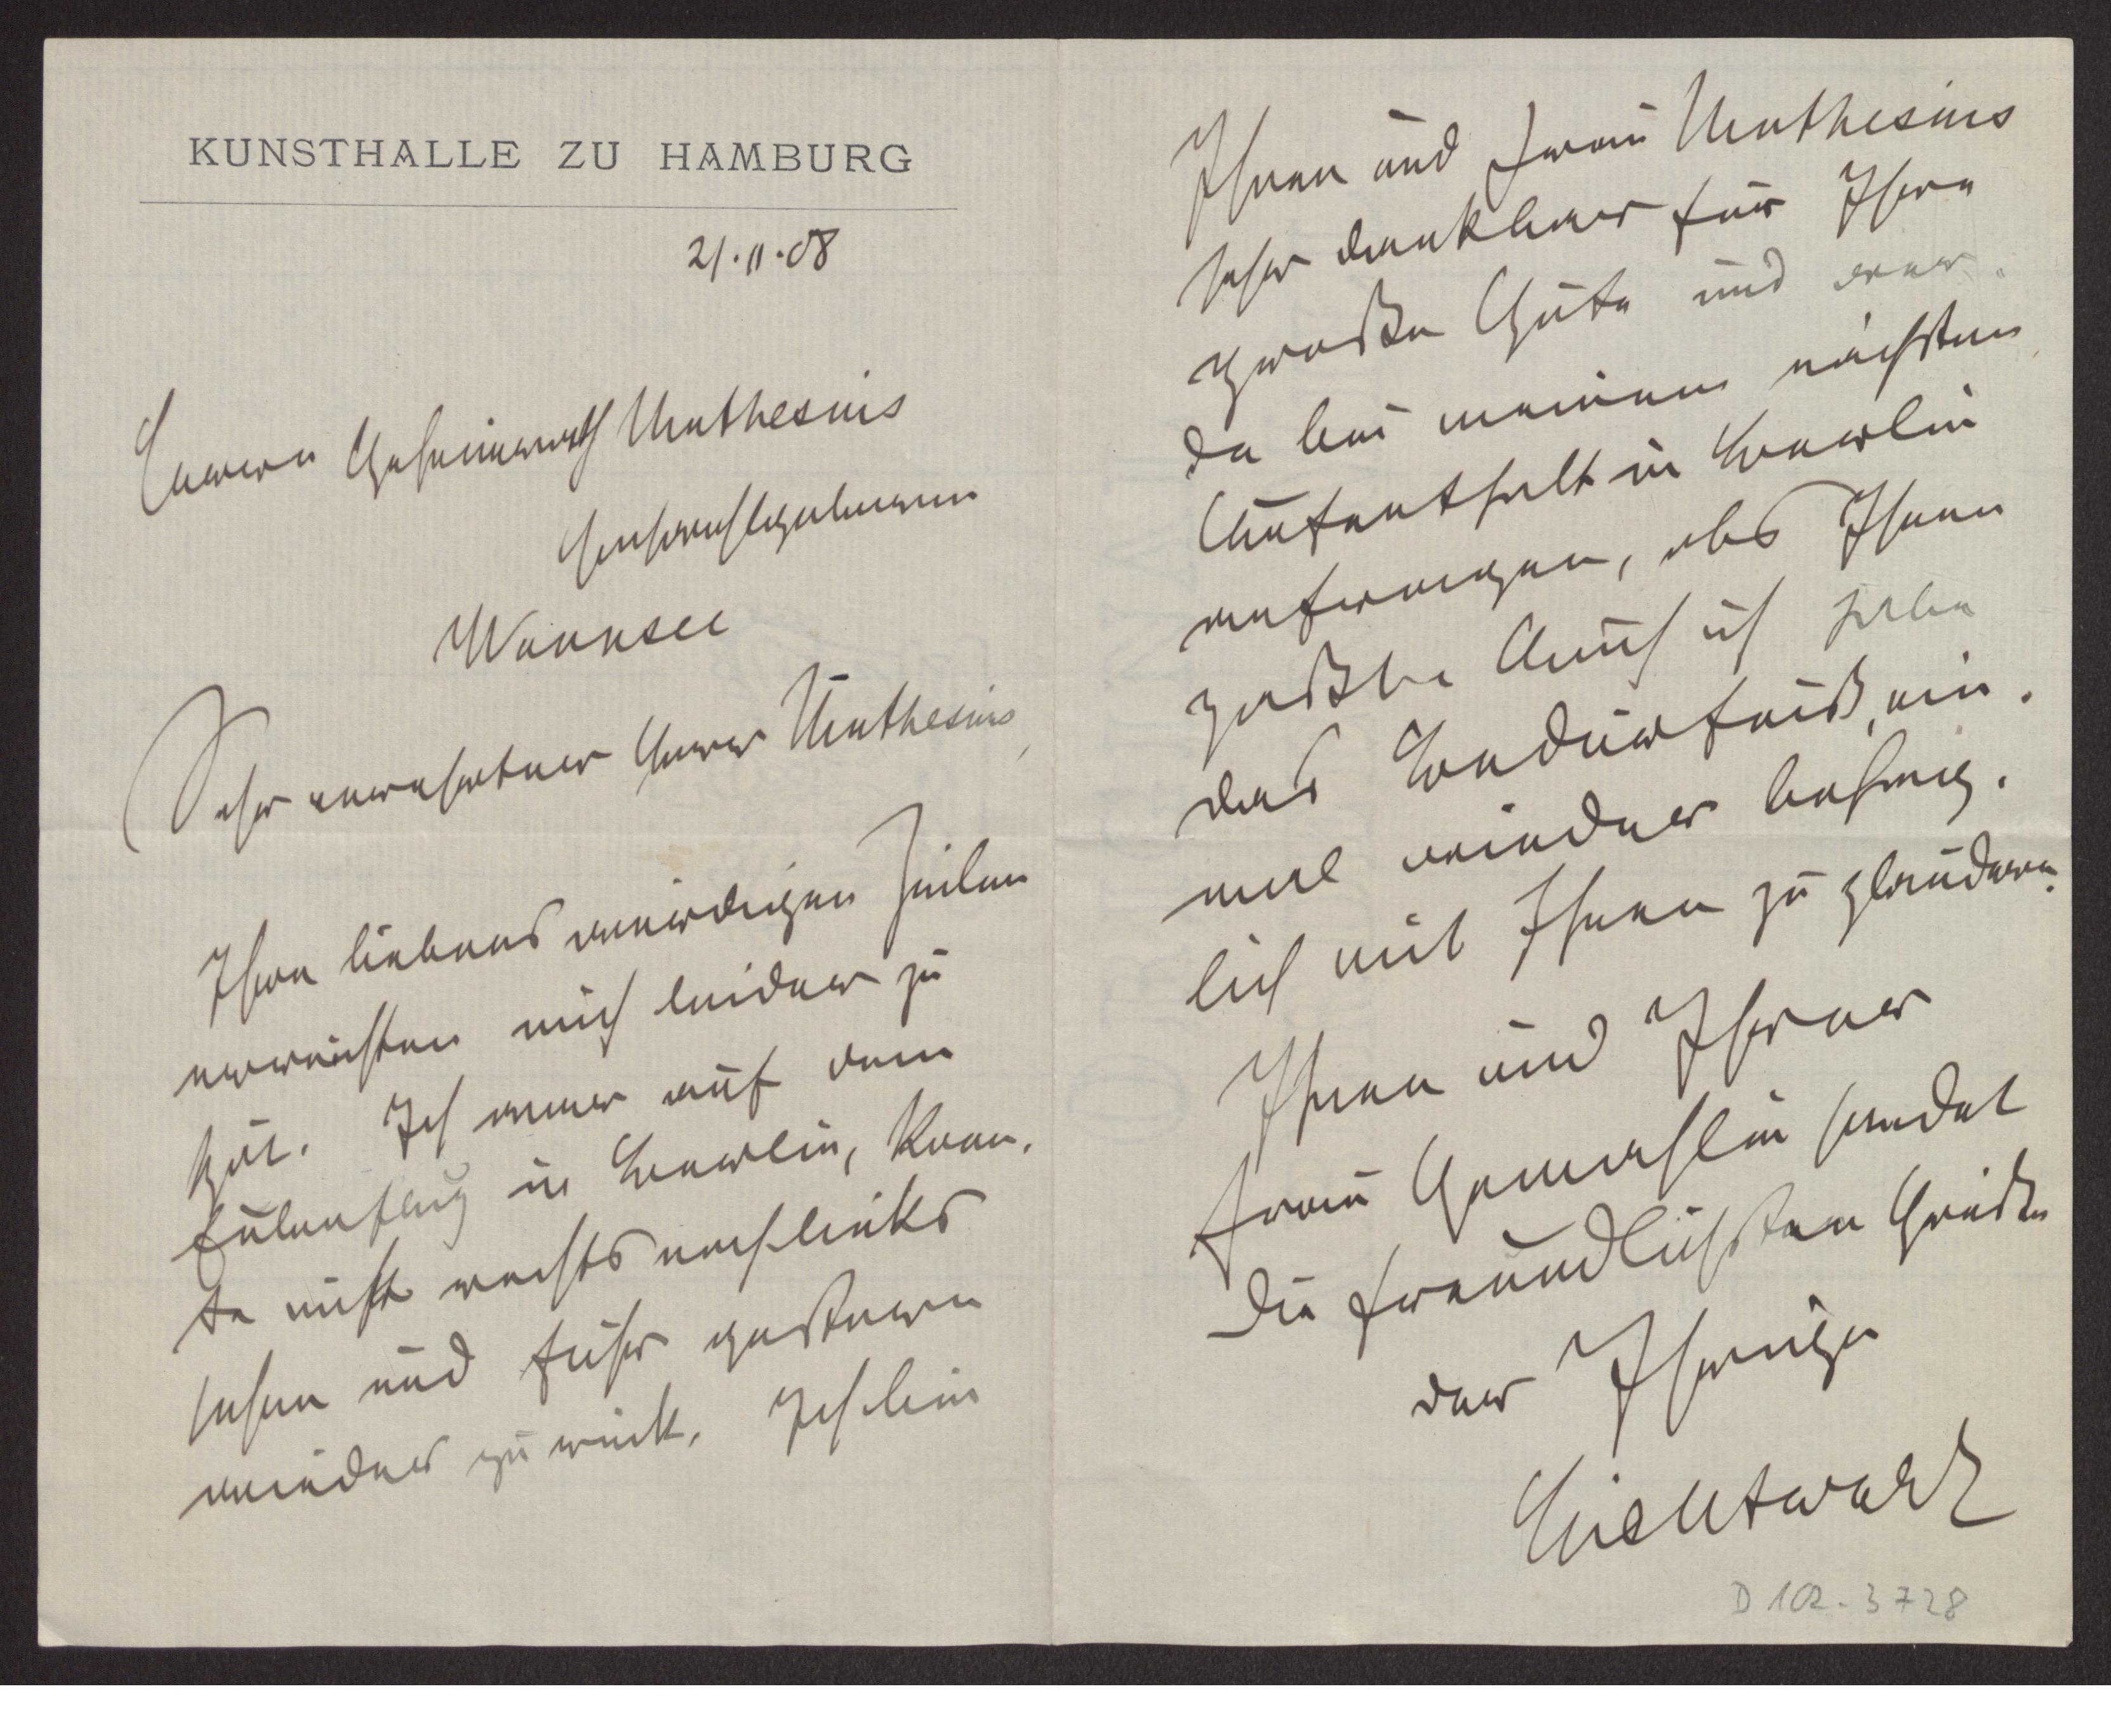 KUNSTHALLE ZU HAMBURG
21.11.08
Herrn Geheimrath Muthesius
Hochwohlgeboren
Wannsee
Sehr verehrter Herr Muthesius,
Ihre liebenswürdigen Zeilen
erreichten mich leider zu
spät. Ich war auf dem
Eulenflug in Berlin, konn-
te nicht rechts noch links
sehen und fuhr gestern
wieder zurück. Ich bin
Ihnen und Frau Muthesius
sehr dankbar für Ihre
große Güte und wer-
de bei meinem nächsten
Aufenthalt in Berlin
anfragen, obs Ihnen
paßt. Auch ich habe
das Bedürfniß, ein-
mal wieder behag-
lich mit Ihnen zu plaudern.
Ihnen und Ihrer
Frau Gemahlin sendet
die freundlichsten Grüße
der Ihrige
Lichtwark
D 102-3728